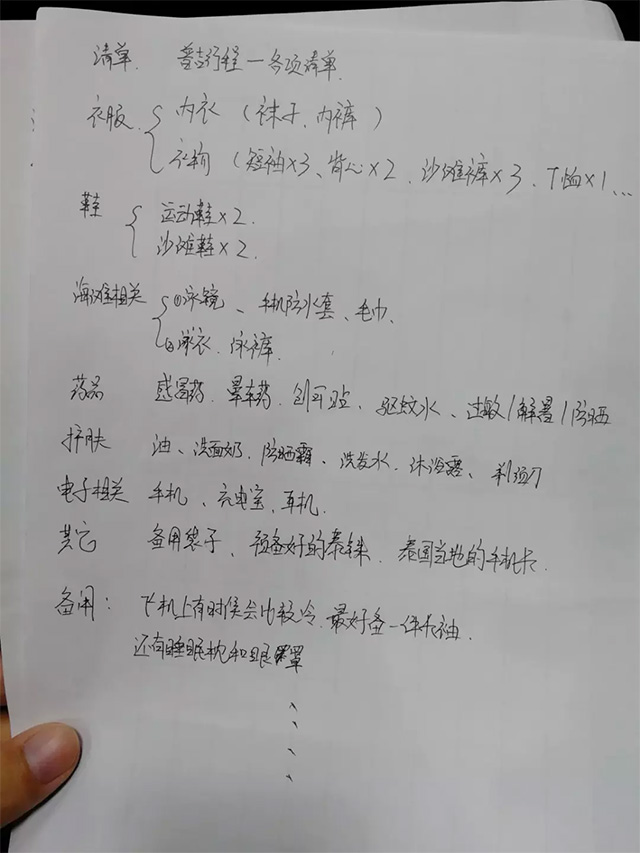 清单. 普吉行程—各项清单.
衣服. 内衣 (袜子、内裤)
衣物 (短袖×3、背心×2、沙滩裤×3、T恤×1...
鞋 运动鞋×2.
沙滩鞋×2.
海滩相关 ①泳镜、手机防水套、毛巾.
②泳衣、泳裤.
药品 感冒药、晕车药、创可贴、驱蚊水、过敏/解暑/防晒
护肤 油、洗面奶、防晒霜、洗发水、沐浴露、剃须刀
电子相关 手机、充电宝、耳机.
其它 备用袋子、预备好的泰铢、泰国当地的手机卡.
备用: 飞机上有时侯会比较冷.最好备一件长袖.
还有睡眠枕和眼罩